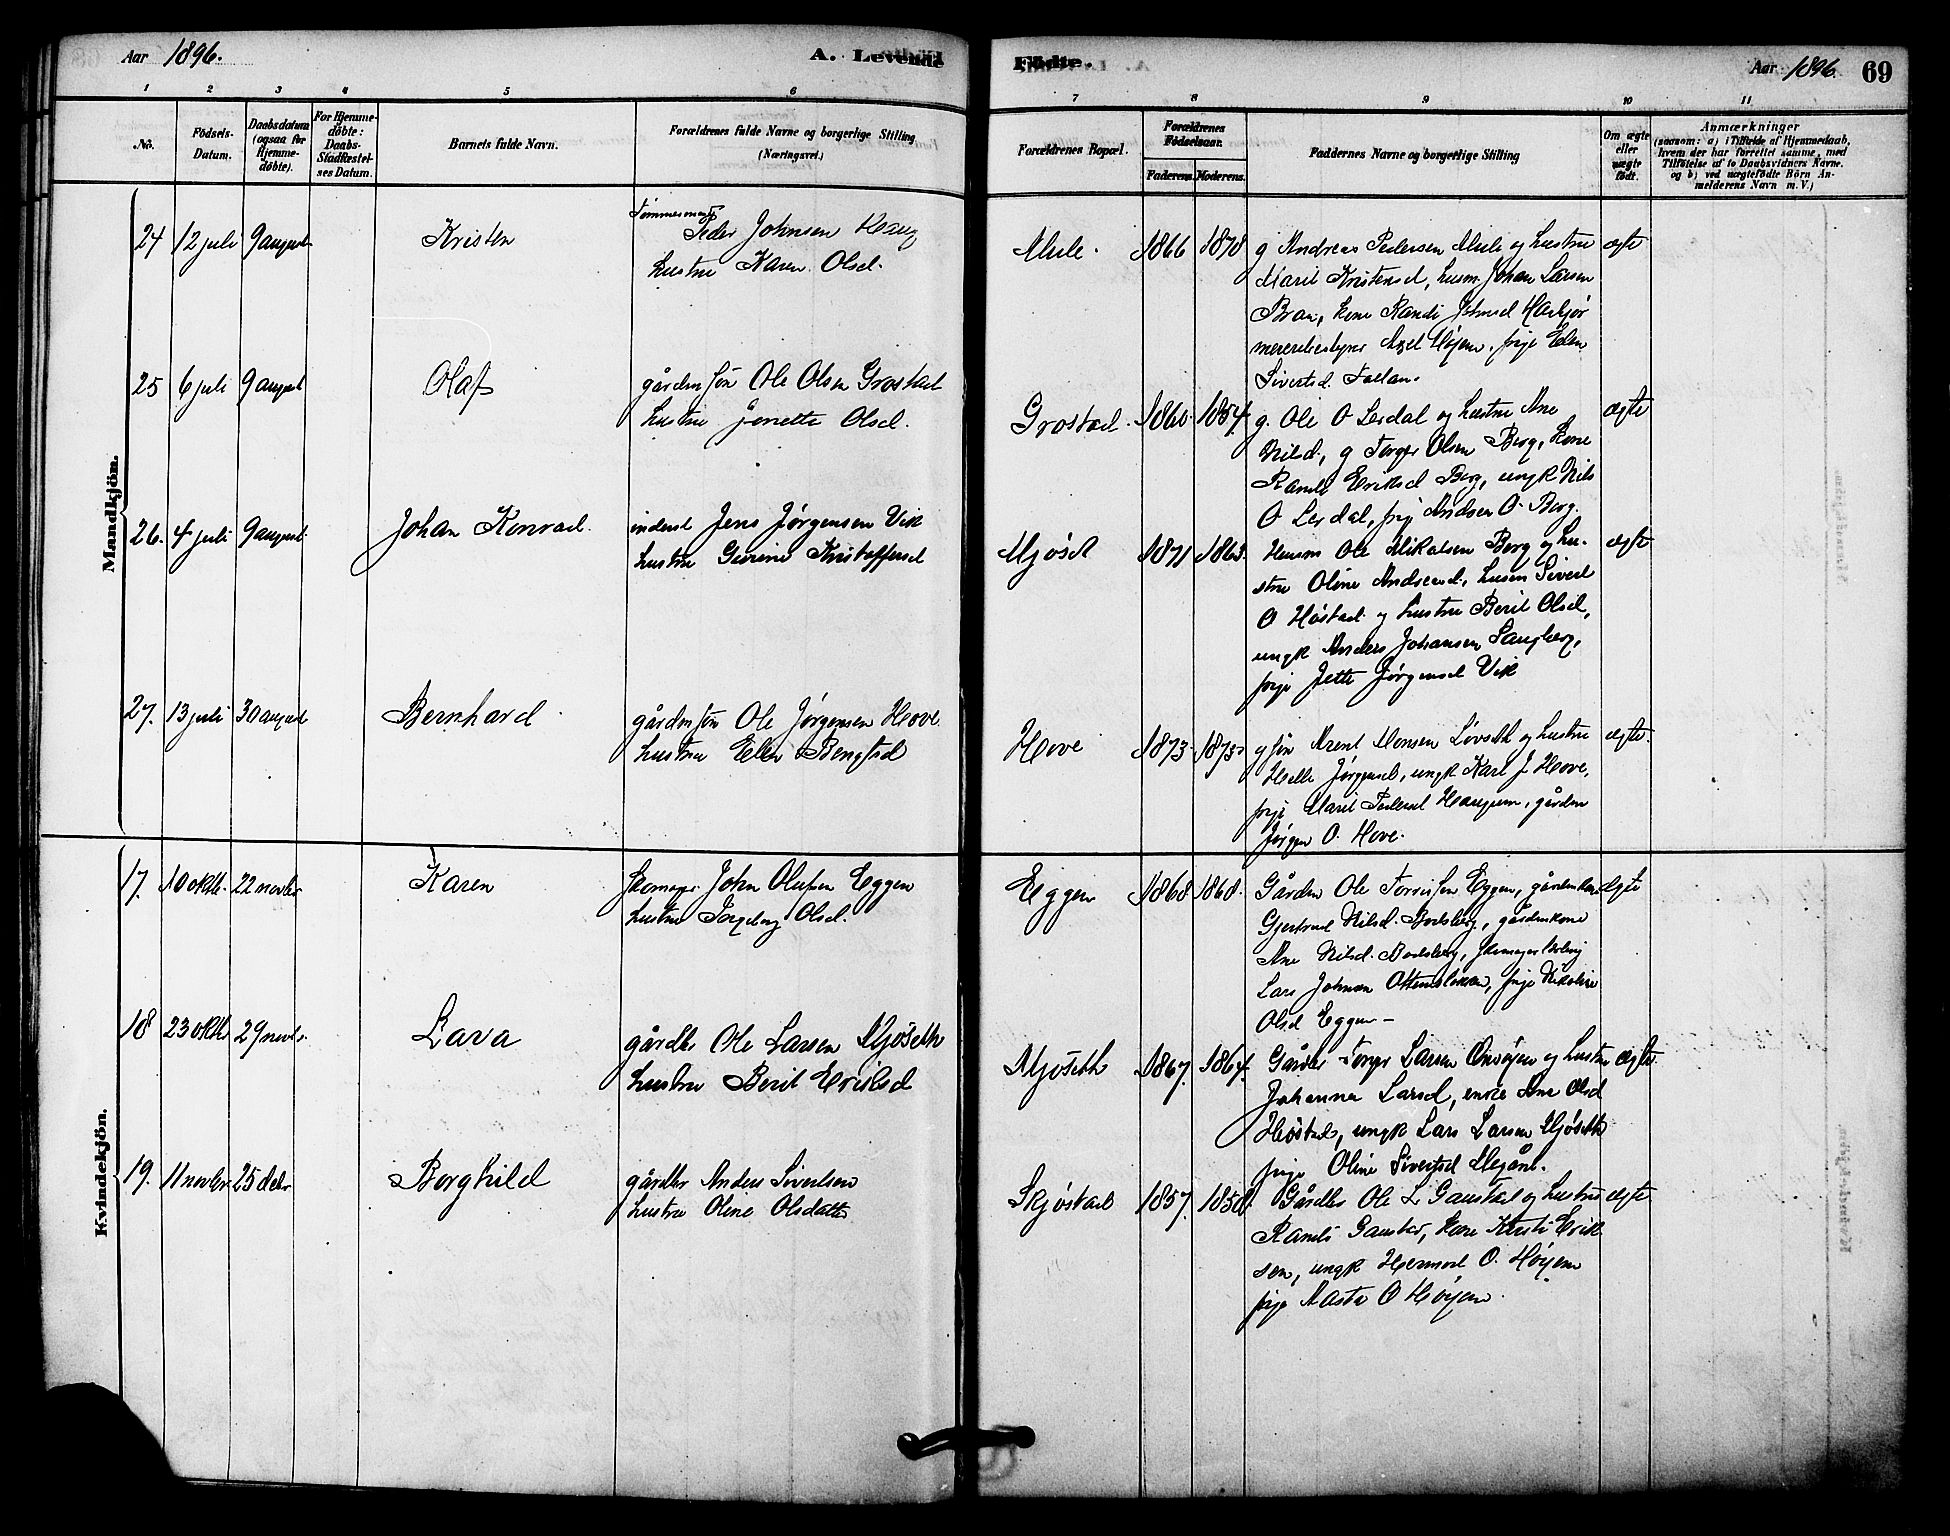 Aar 1896. A. Levende
1 2 3 4 5 6
No. Födsels-Datum. Daabsdatum (ogsaa for Hjemmedöbte). For Hjemmedöbte: Daabs-Stadfæstelses Datum. Barnets fulde Navn. Forældrenes fulde Navne og borgerlige Stilling (Næringsvei.)
Mandkjön.
24 12 juli 9 august Kristen Tømmermand
Peder Johnsen Haug
hustru Karen Olsd.
25 6 juli 9 august Olaf gårdmsøn Ole Olsen Grostad
hustru Jonette Olsd.
26. 4 juli 9 august Johan Konrad. inderst Jens Jørgensen Vik
hustru Gurine Kristoffersd
27. 13 juli 30 august Bernhard gårdmsøn Ole Jørgensen Hove
hustru Ellen Bengtsd
Kvindekjön.
17. 10 oktb. 22 novbr Karen skomager John Olufsen Eggen
hustru Olsd.
18 23 oktbr 29 novbr. Lava gårdbr Ole Larsen Mjøseth
hustru Berit Eriksd
19. 11 novbr. 25 decbr Borghild gårdbr Anders Sivertsen
hustru Oline Olsdatter
Födte. Aar 1896 69
7 8 9 10 11
Forældrenes Bopæl. Forældrenes Födselsaar. Faderens. Moderens. Faddernes Navne og borgerlige Stilling Om ægte eller uægte födt. Anmærkninger
(saasom: a) i Tilfælde af Hjemmedaab,
hvem der har forrettet samme, med
Tilföielse af to Daabsvidners Navne.
og b) ved uægtefödte Börn An-
melderens Navn m. V.)
Mule. 1866 1878 g Andreas Pedersen Mule og hustru ægte
Marit Kristensd, husm. Johan Larsen
Braa, kone Randi Johnsd
Axel Højem, pige Elen
Sivertsd
Grostad. 1860. 1854. g. Ole O Lerdal og hustru Ane ægte
Nilsd., g Torger Olsen Berg, kone
Randi Eriksd Berg, ungk Nils
O Lerdal, pige O. Berg.
Mjøset 1871 1863. Husm Ole Mikalsen Berg og hu- ægte
stru Oline Andreasd., husm Sivert
O Høstad og hustru Berit Olsd,
ungk Anders Johansen
pige Jette Jørgensd Vik
Hove 1873 1873 gsøn Arent Monsen Løvseth og hustru ægte.
Jørgensd, ungk Karl J Hove,
pige Marit Pedersd Haugum, gårdm
Jørgen O. Hove.
Eggen 1868 1868. Gårdm Ole Eggen, gårdmkone ægte
Gjertrud Nilsd. Bodsberg, gårdmkone
Ane Nilsd. Bodsberg, skomager
Lars Johnsen pige Nikoline
Olsd Eggen –
Mjøseth 1867. 1864. Gårdbr Torger Larsen og hustru ægte
Johanna Larsd, enke Ane Olsd
Høstad, ungk Lars Larsen Mjøseth
pige Oline Sivertsd
Skjøstad 1857. 1858. Gårdbr Ole L Gaustad og hustru ægte
Randi Gaustad, kone Kirsti Erik-
sen, ungk Hermod O. Høyem
pige Masta O Høyem.